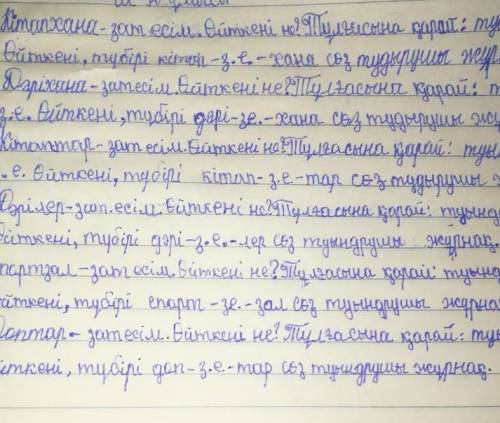 Кітапхана-зат есім. Өйткені не? Тұлғасына қарай: ту
Өйткені, түбірі кітап-з.е.-хана сөз тудырушы жұр
Дәріхана-зат есім. Өйткені не? Тұлғасына қарай: т
з.е. Өйткені, түбірі дәрі-зе.-хана сөз тудырушы жұ
Кітаптар-зат есім. Өйткені не? Тұлғасына қарай: туы
.е. Өйткені, түбірі кітап-з.е-тар сөз тудырушы ж
Дәрілер-зат.есім. Өйткені не? Тұлғасына қарай: туынд
Өйткені, түбірі дәрі-з.е.-лер сөз туындрушы жұрнақ.
партзал-зат есім. Өйткені не? Тұлғасына қарай: туынд
өйткені, түбірі спорт-зе.-зал сөз туындрушы жұрна
Доптар-зат есім. Өйткені не? Тұлғасына қарай: туы
йткені, түбірі доп-з.е.-тар сөз туындрушы жұрнақ.